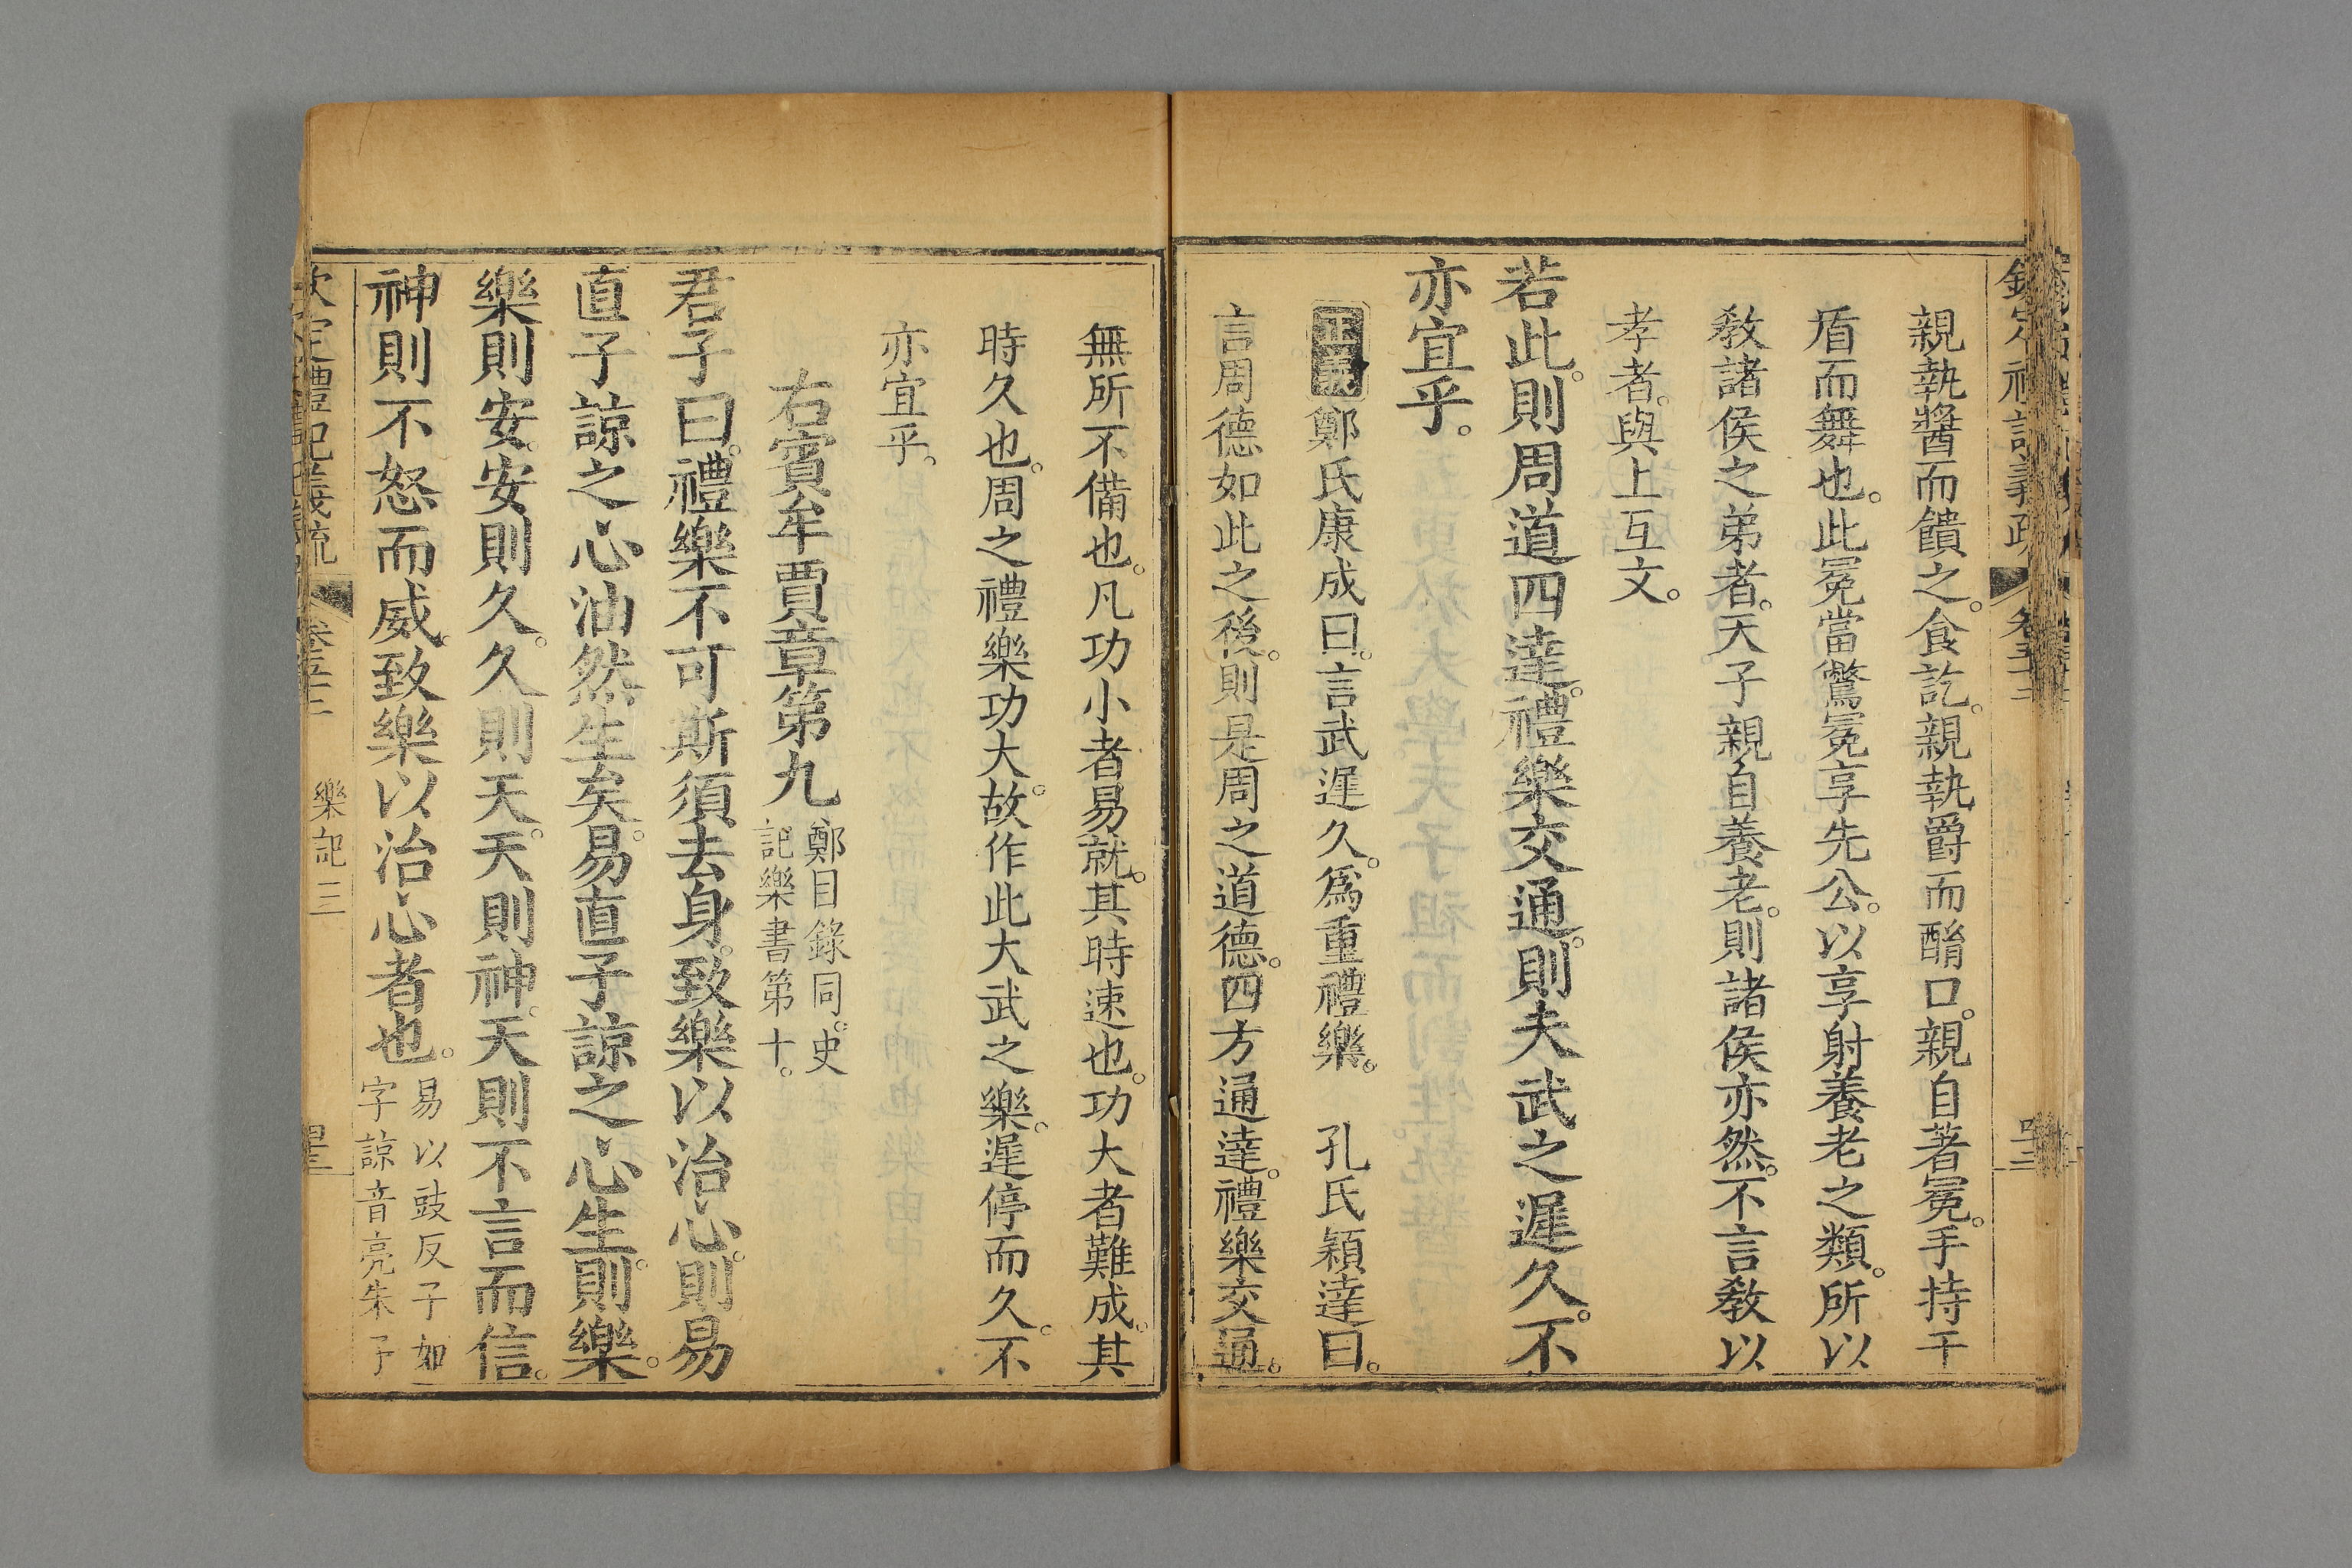 親執醬而饋之。食訖。親執爵而酳口。親自著冕。手持干
盾而舞也。此冕當鷩冕享先公。以享射養老之類。所以
敎諸侯之弟者。天子親自養老。則諸侯亦然。不言敎以
孝者。與上互文。
若此。則周道四達。禮樂交通。則夫武之遲久。不
亦宜乎。
正義 鄭氏康成曰。言武遲久。爲重禮樂。 孔氏穎達曰。
言周德如此之後。則是周之道德。四方通達。禮樂交通。
無所不備也。凡功小者易就。其時速也。功大者難成。其
時久也。周之禮樂功大。故作此大武之樂。遲停而久。不
亦宜乎。
右賓牟賈章第九
鄭目錄同。史
記樂書第十。
君子曰。禮樂不可斯須去身。致樂以治心。則易
直子諒之心油然生矣。易直子諒之心生。則樂。
樂則安。安則久。久則天。天則神。天則不言而信。
神則不怒而威。致樂以治心者也。
易以豉反子如
字諒音亮朱子
欽定禮記義疏 卷五十二 樂記三